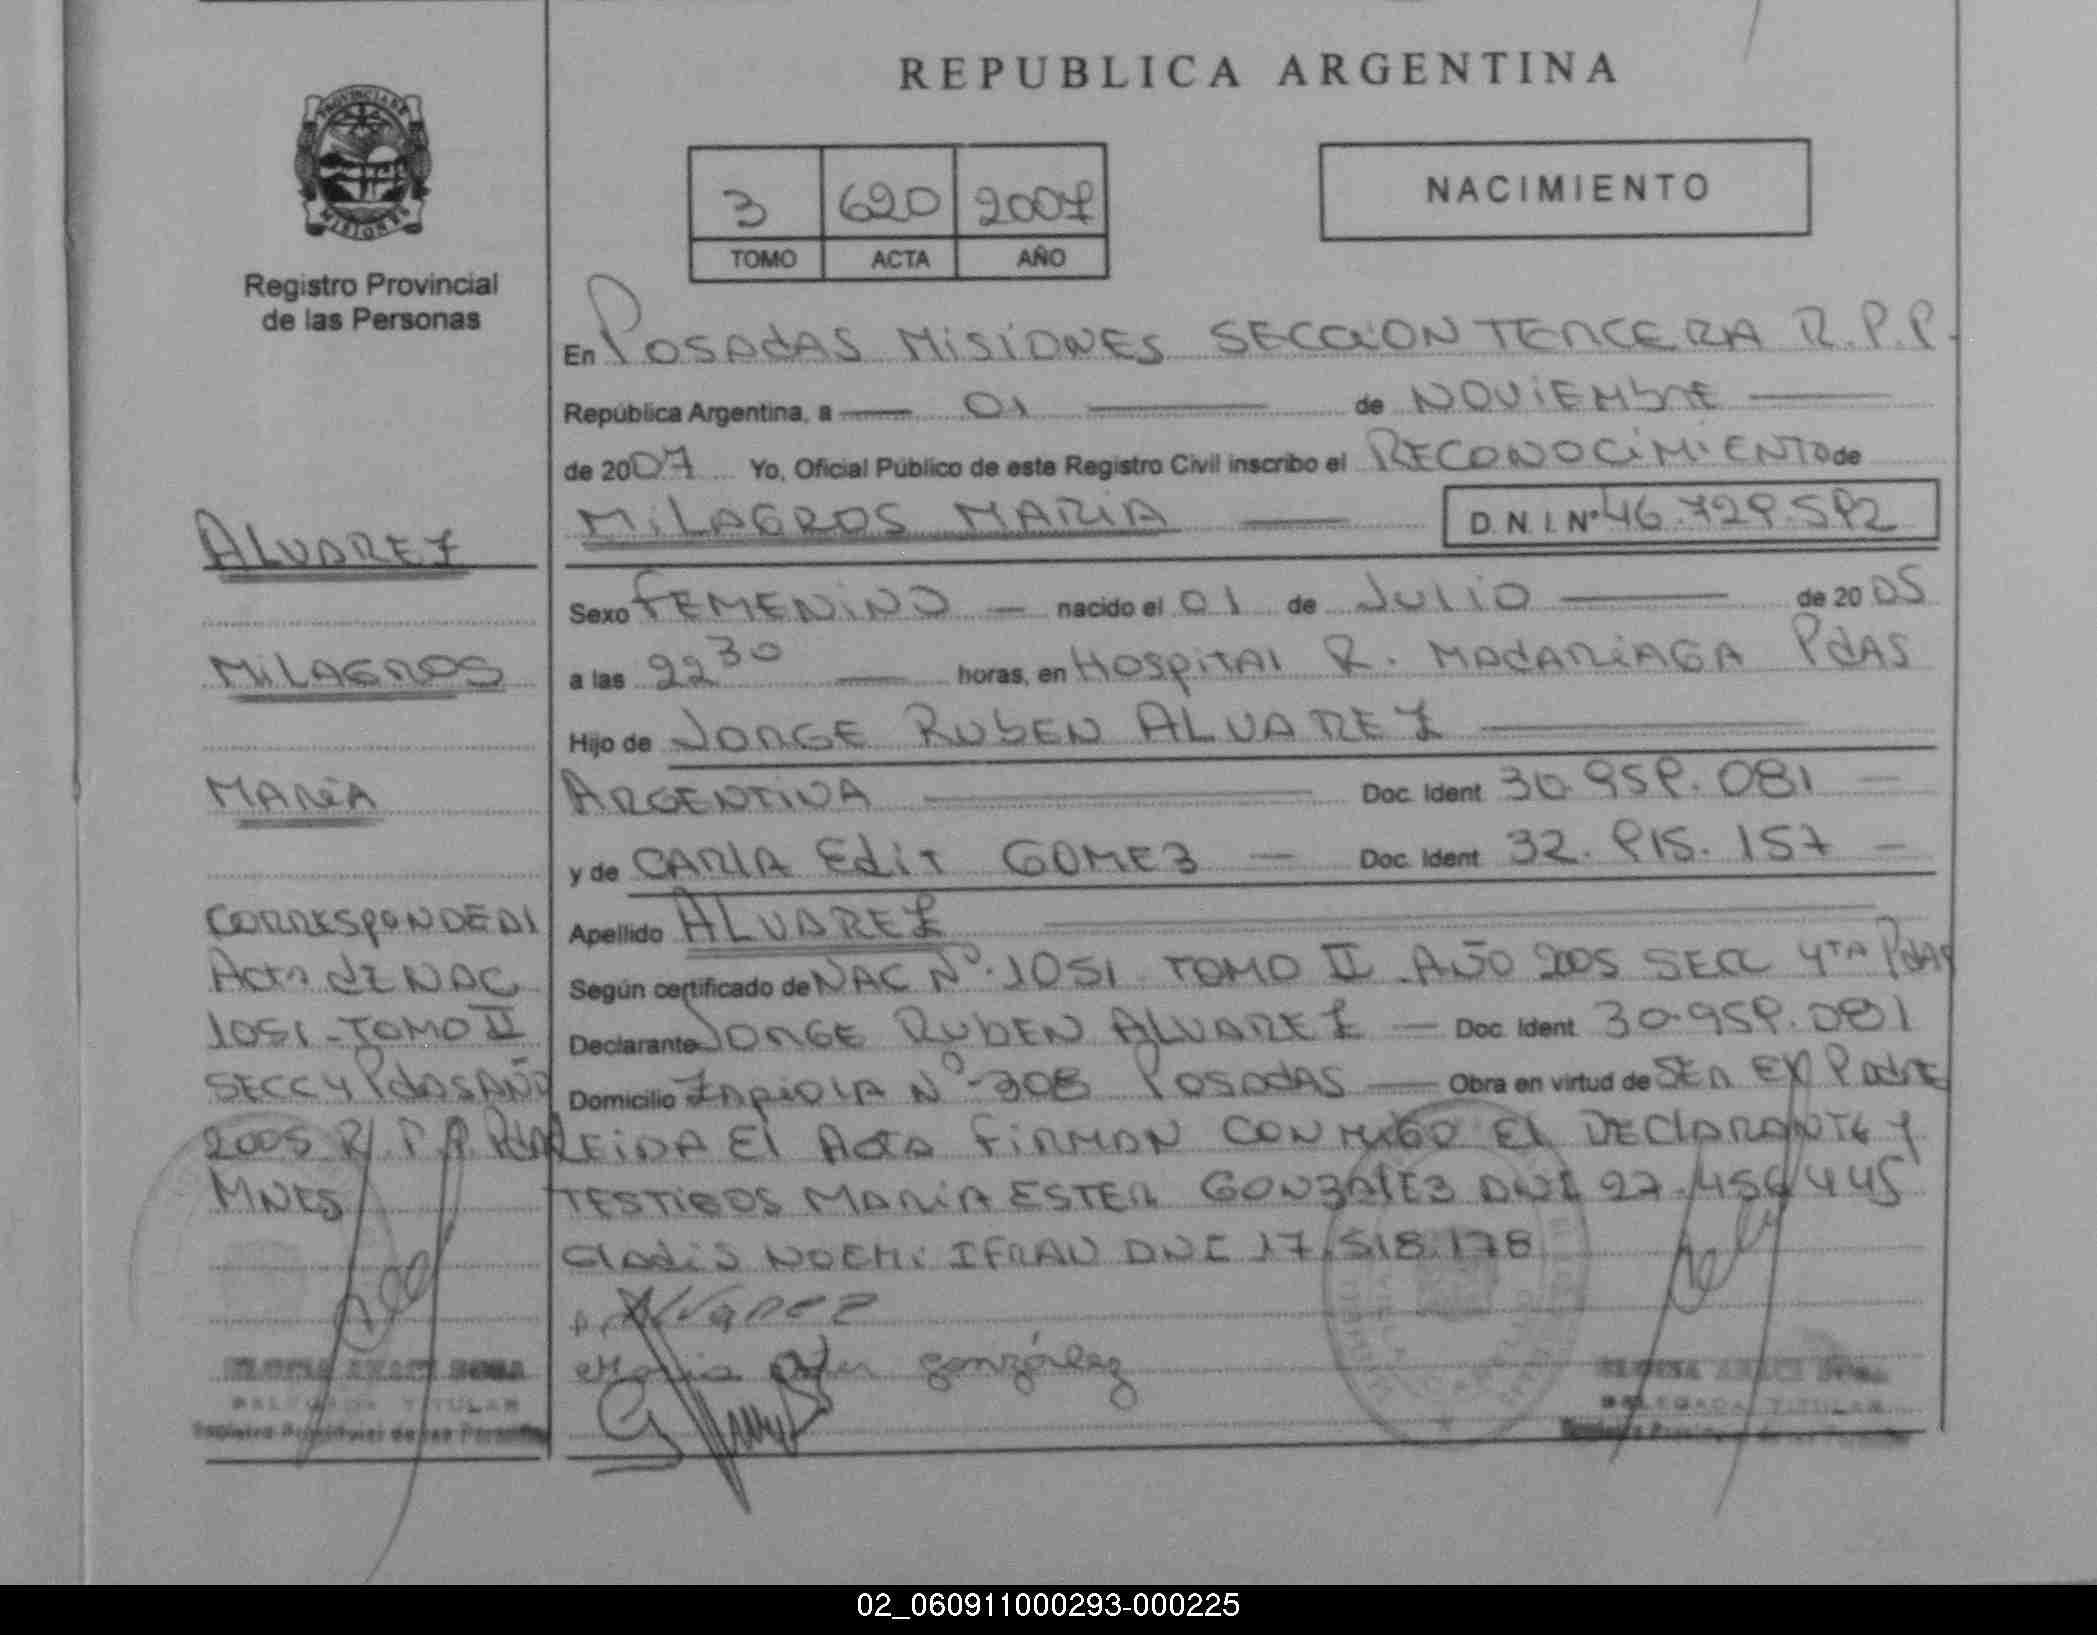 REPUBLICA ARGENTINA
PROVINCIA DE
MISIONES
Registro Provincial
de las Personas
3 620 2007
TOMO ACTA AÑO
NACIMIENTO
En POSADAS MISIONES SECCION TERCERA R.P.P.
República Argentina, a 01 de NOVIEMBRE
de 2007 Yo, Oficial Público de este Registro Civil inscribo el RECONOCIMIENTO de
MILAGROS MARIA D.N.I. Nº 46.729.592
Sexo FEMENINO nacido el 01 de JULIO de 2005
a las 22 30 horas, en HOSPITAL R. MADARIAGA PdAS
Hijo de JORGE RUBEN ALVAREZ
ARGENTINA Doc. Ident 30.959.081
y de CARLA Edit GOMEZ Doc. Ident 32.915.157
Apellido ALVAREZ
Según certificado de NAC Nº 1051 TOMO II AÑO 2005 SECC 4TA PdAS
Declarante JORGE RUBEN ALVAREZ Doc. Ident 30.959.081
Domicilio ZAPIOLA Nº 308 POSADAS Obra en virtud de SER EL PADRE
LEIDA El ActA FIRMAN CONMIGO El DEClARANTE Y
TESTIGOS MARIA ESTER GONZALEZ DNI 27.456.445
GladiS NOEMi IFRAN DNI 17.518.178
Alvarez
Maria Ester González
ALVAREZ
MILAGROS
MARIA
CORRESPONDE AL
ActA dE NAC
1051 - TOMO II
SECC 4 PdAS AÑO
2005 R.P.P. PdAS
MNES
DELEGADA TITULAR
Registro Provincial de las Personas
DELEGADA TITULAR
02_060911000293-000225